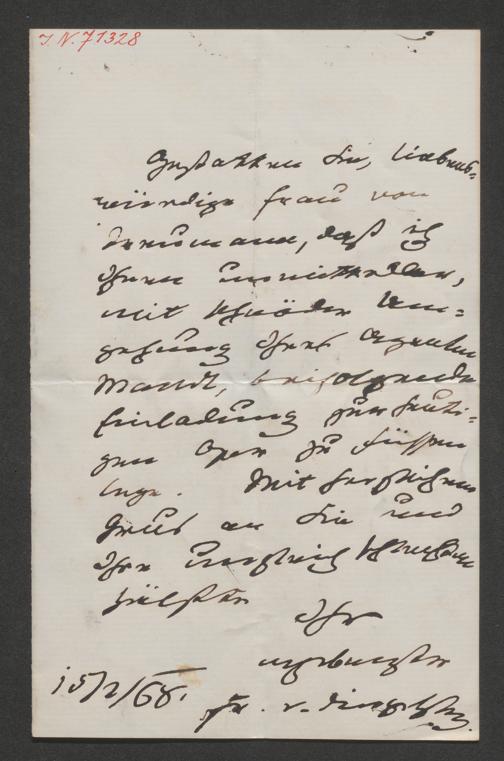 J.N. 71328
Gestatten Sie, liebens-
würdige Frau von
daß ich
Ihnen unmittelbar,
mit schnöder Um-
gehung Ihres Agenten
beifolgende
Einladung zur heuti-
gen Oper zu Füssen
lege. Mit herzlichem
Gruß an Sie und
Ihre
Hälfte
Ihr
ergebenster
15/2/68.
Fr. v. Dingelstedt.